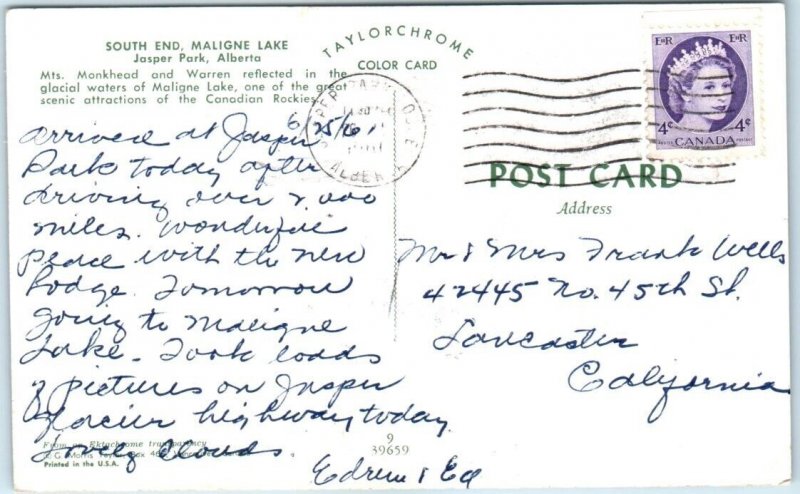 SOUTH END, MALIGNE LAKE
Jasper Park, Alberta
Mts. Monkhead and Warren reflected in the
glacial waters of Maligne Lake, one of the great
scenic attractions of the Canadian Rockies.
TAYLORCHROME
COLOR CARD
E II R E II R
4¢ 4¢
CANADA
JASPER PARK
ALBERTA
POST CARD
Address
6/25/61
Arrived at Jasper
Park today after
driving over 2,000
miles. Wonderful
Peace with the new
Lodge. Tomorrow
going to Maligne
Lake. Took loads
of pictures on Jasper
Glacier highway today.
Lovely Clouds
Ed
Mr & Mrs Frank Wells
42445 No. 45th St.
Lancaster
California
From an Ektachrome transparency
Printed in the U.S.A.
9
39659